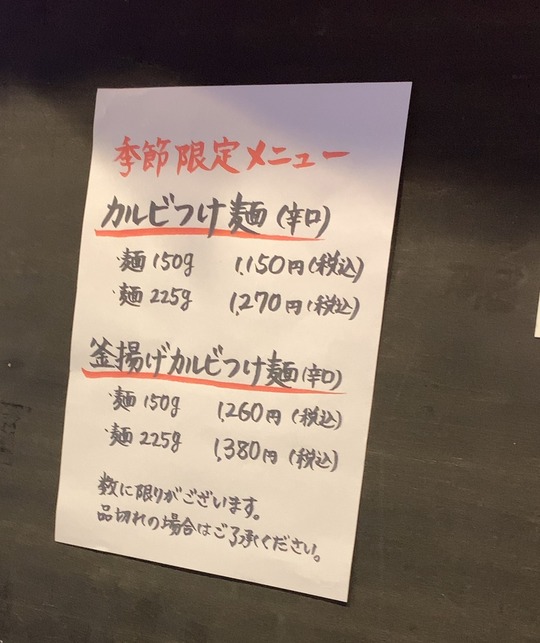 季節限定メニュー
カルビつけ麺(辛口)
・麺150g 1,150円(税込)
・麺225g 1,270円(税込)
釜揚げカルビつけ麺(辛口)
・麺150g 1,260円(税込)
・麺225g 1,380円(税込)
数に限りがございます。
品切れの場合はご了承ください。